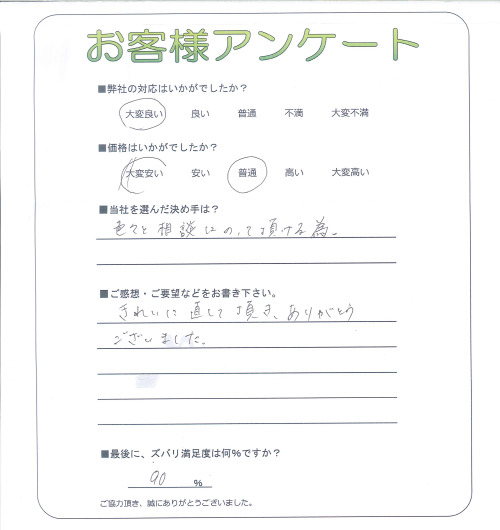 お客様アンケート
■弊社の対応はいかがでしたか？
大変良い 良い 普通 不満 大変不満
■価格はいかがでしたか？
大変安い 安い 普通 高い 大変高い
■当社を選んだ決め手は？
色々と相談にのって頂ける為。
■ご感想・ご要望などをお書き下さい。
きれいに直して頂き、ありがとう
ございました。
■最後に、ズバリ満足度は何%ですか？
90 %
ご協力頂き、誠にありがとうございました。